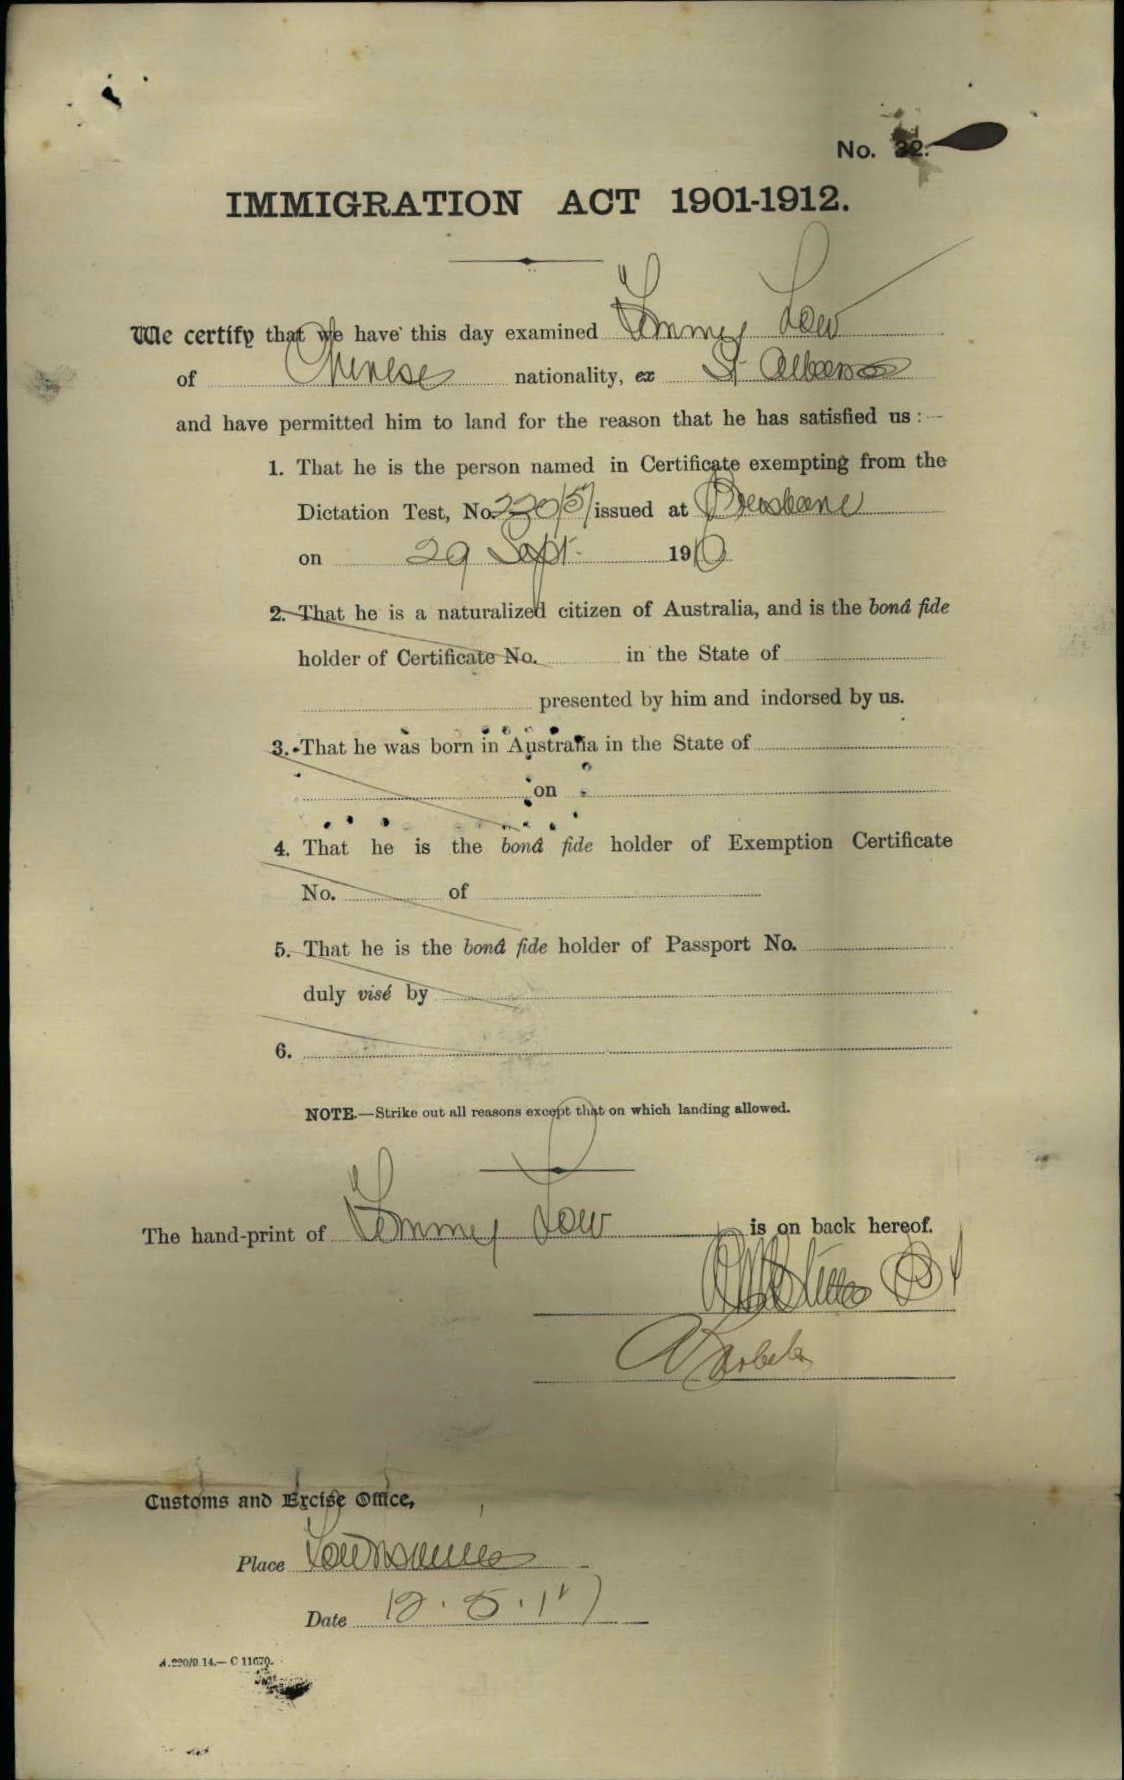 No. 32.
IMMIGRATION ACT 1901-1912.
We certify that we have this day examined Tommy Low
of Chinese nationality, ex St Albans
and have permitted him to land for the reason that he has satisfied us :—
1. That he is the person named in Certificate exempting from the
Dictation Test, No. 220/57 issued at Brisbane
on 29 Sept. 1910
2. That he is a naturalized citizen of Australia, and is the bonâ fide
holder of Certificate No. in the State of
presented by him and indorsed by us.
3. That he was born in Australia in the State of
on
4. That he is the bonâ fide holder of Exemption Certificate
No. of
5. That he is the bonâ fide holder of Passport No.
duly visé by
6.
NOTE.—Strike out all reasons except that on which landing allowed.
The hand-print of Tommy Low is on back hereof.
Customs and Excise Office,
Place Townsville
Date 12.5.17
A.220/9.14.—C 11670.